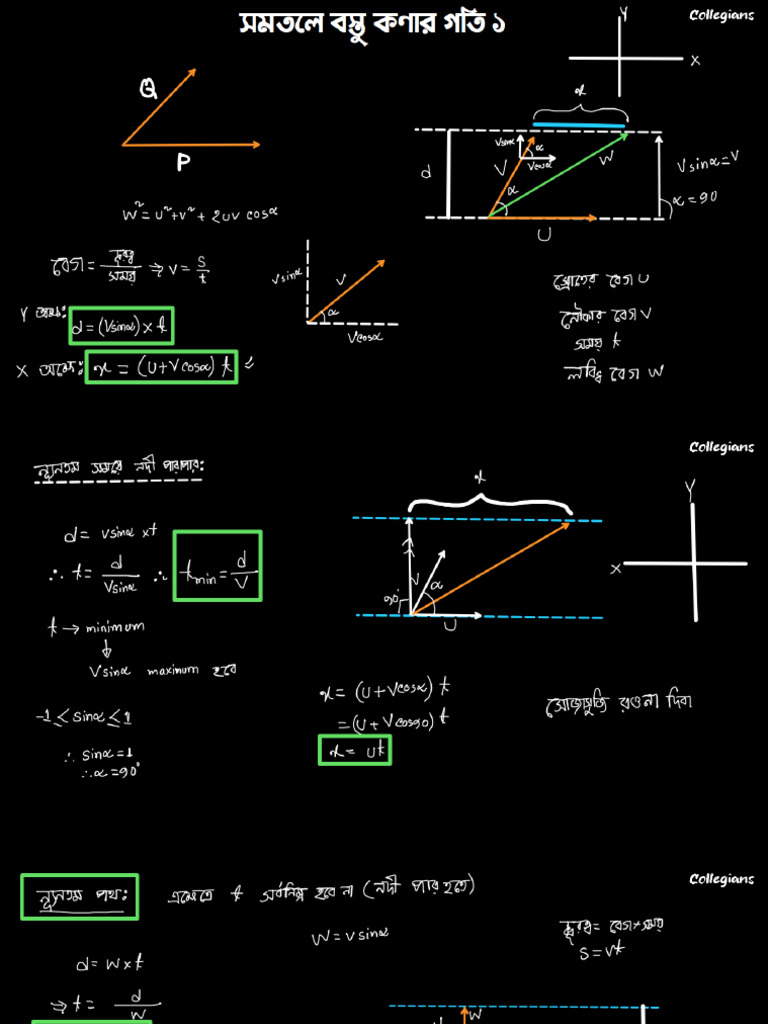 সমতলে বস্তু কণার গতি ১
Collegians
Y
X
Q
P
x
d
Vsinα
α
Vcosα
V
W
α
U
Vsinα=V
α=90
W²=U²+V²+2UV cosα
বেগ = দূরত্ব/সময় ⇒ V = S/t
Vsinα
V
α
Vcosα
স্রোতের বেগ U
নৌকার বেগ V
সময় t
লব্ধি বেগ W
Y অক্ষে:
d=(Vsinα)×t
X অক্ষে: x = (U+Vcosα) t
Collegians
ন্যূনতম সময়ে নদী পারাপার:
x
Y
X
d= Vsinα×t
∴ t= d/Vsinα ∴ t min = d/V
90°
V
α
U
t → minimum
Vsinα maximum হবে
x= (U+Vcosα) t
=(U+Vcos90) t
x= Ut
সোজাসুজি রওনা দিবা
-1 ≤ sinα ≤ 1
∴ sinα=1
∴ α=90°
Collegians
ন্যূনতম পথ:
এক্ষেত্রে t সর্বনিম্ন হবে না (নদী পার হতে)
W=Vsinα
দূরত্ব= বেগ×সময়
S=Vt
d=W×t
⇒ t= d/W
W